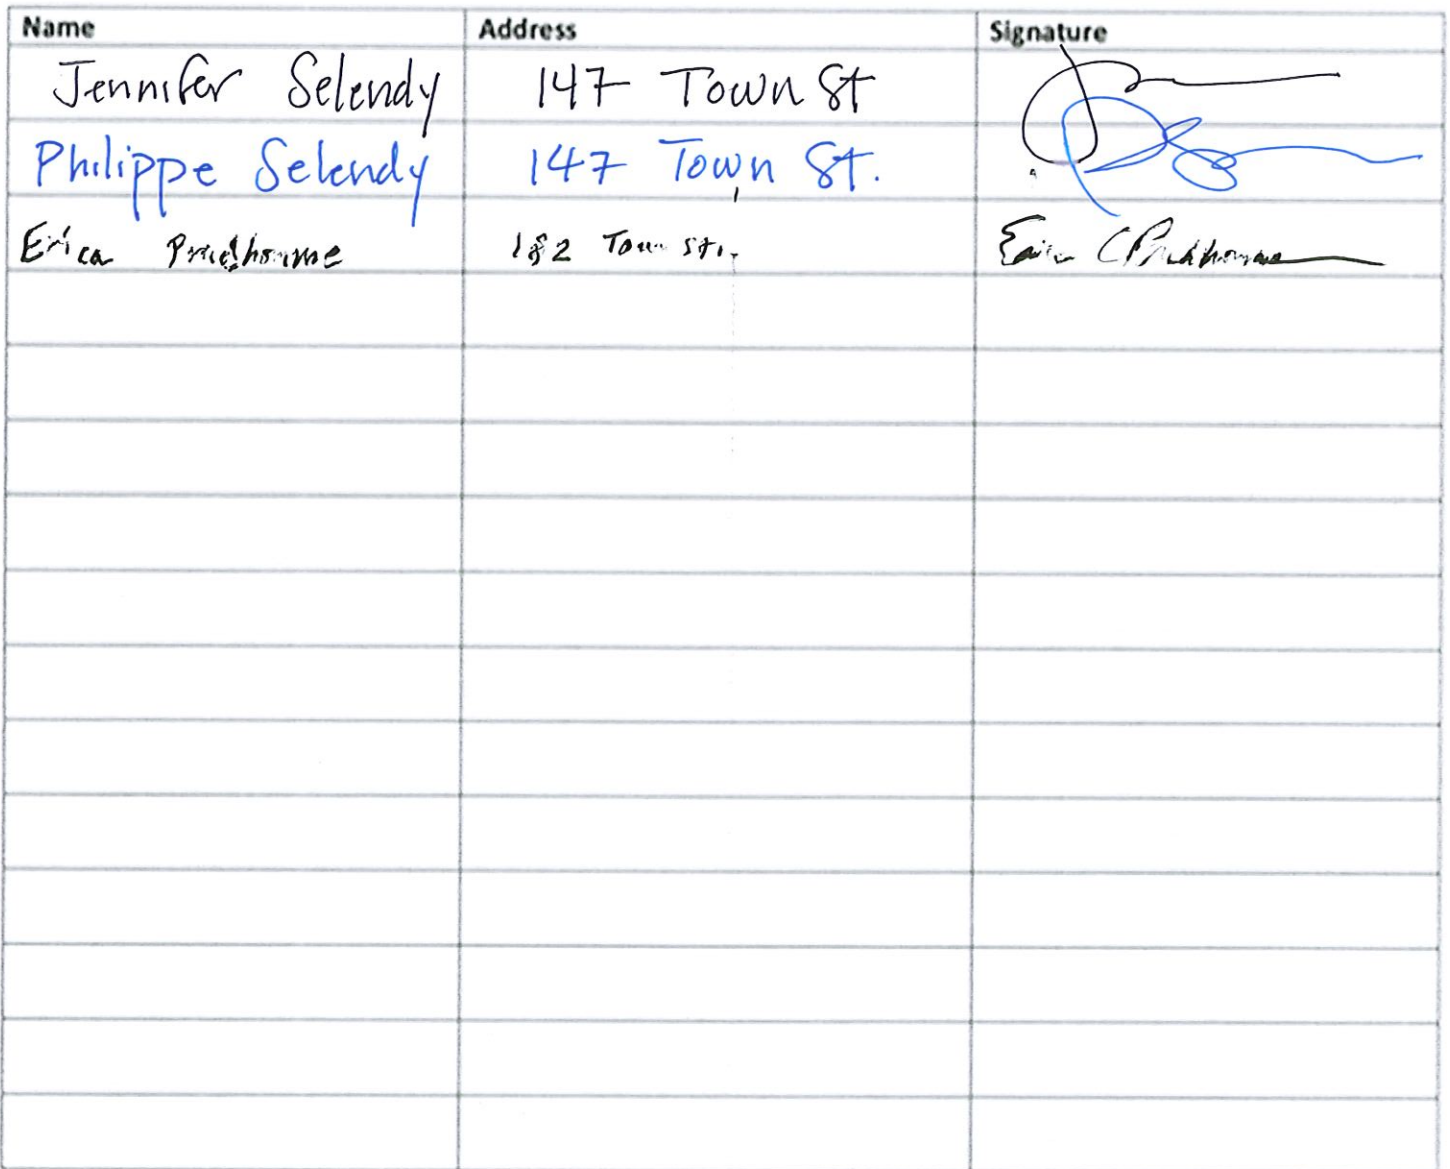 Name Address Signature
Jennifer Selendy 147 Town St
Philippe Selendy 147 Town St.
Erica Prudhomme 182 Town St. Erica C Prudhomme